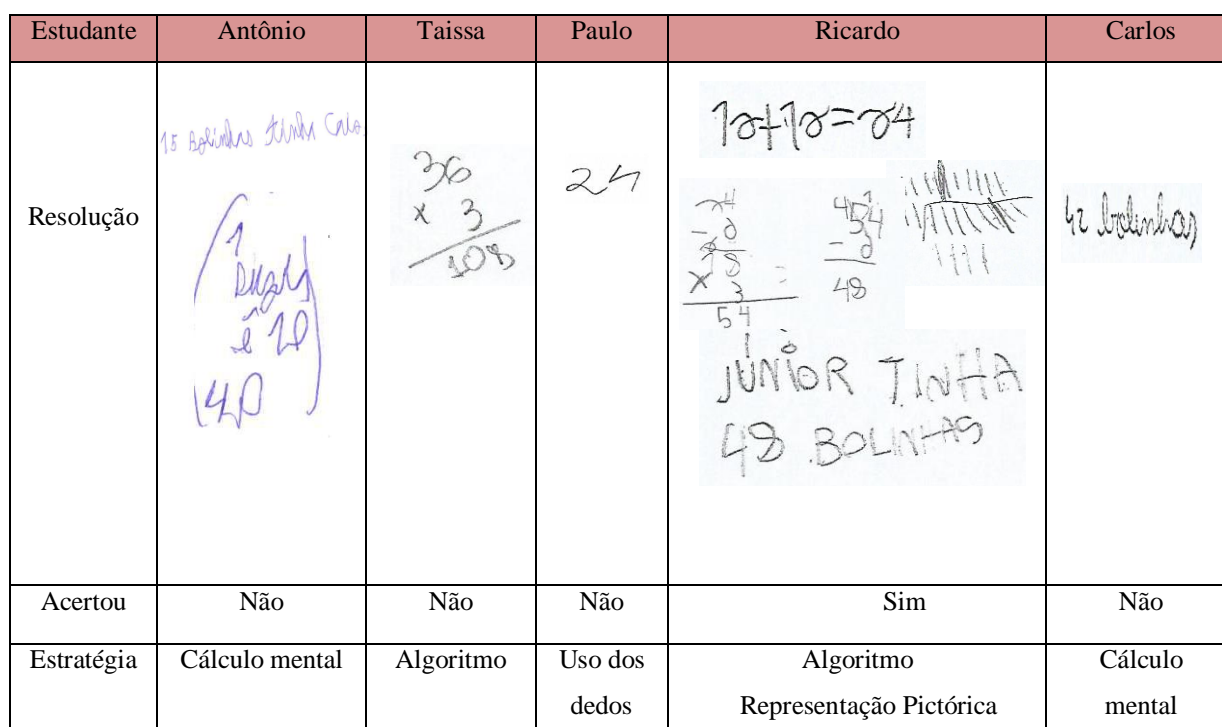 Estudante Antônio Taissa Paulo Ricardo Carlos
Resolução
15 Bolinhas tinha
1
é
36
x 3
108
24
12+12=24
24
- 6
18
x 3 =
54
54
- 6
48
JÚNIOR TINHA
48 BOLINHAS
42 bolinhas
Acertou Não Não Não Sim Não
Estratégia Cálculo mental Algoritmo Uso dos dedos Algoritmo Representação Pictórica Cálculo mental